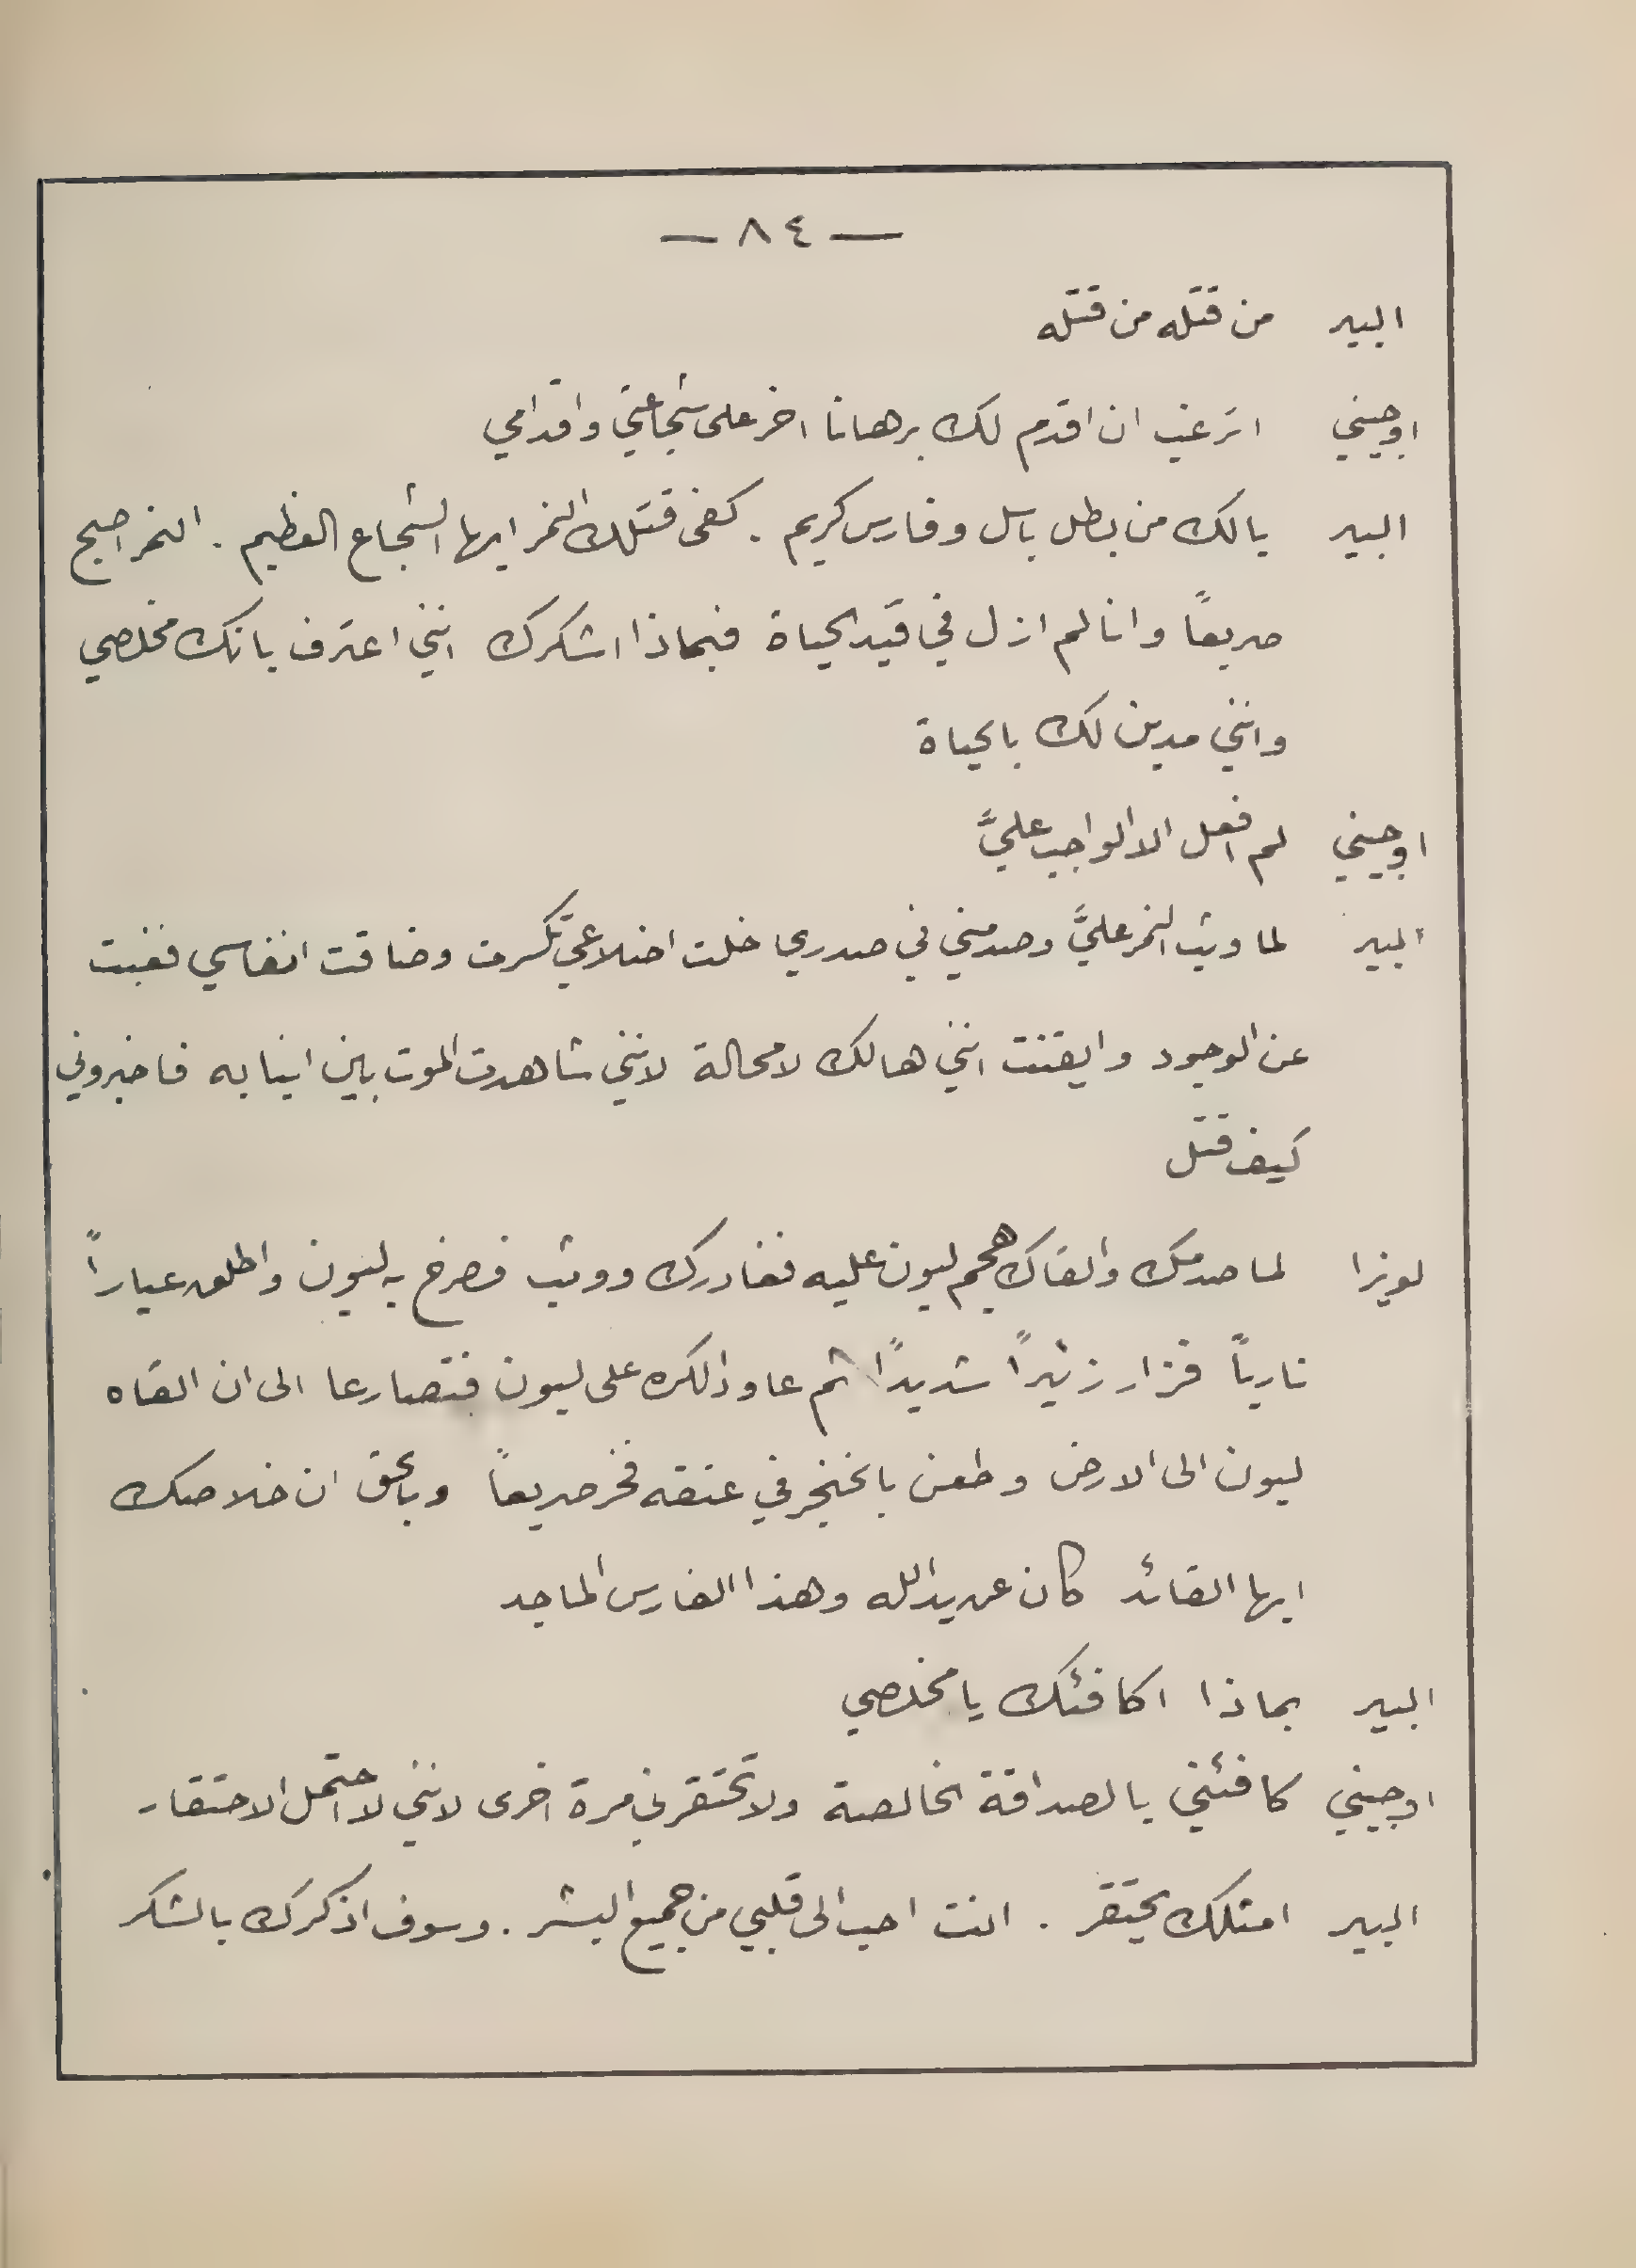 — ٨٤ —
البير من قتله من قتله
اوجيني اترغب ان اقدم لك برهانا اخر على شجاعتي واقدامي
البير يالك من بطل باسل وفارس كريم . كفى قتلك النمر ايها الشجاع العظيم . النمر اصبح
صريعاً وانا لم ازل في قيد الحياة فبماذا اشكرك انني اعترف بانك مخلصي
وانني مدين لك بالحياة
اوجيني لم افعل الا الواجب عليَّ
البير لما وثب النمر عليَّ وصدمني في صدري خلت اضلاعي تكسرت وضاقت انفاسي فغبت
عن الوجود وايقنت انني هالك لا محالة لانني شاهدت الموت بين انيابه فاخبروني
كيف قتل
لويزا لما صدمك والقاك هجم ليون عليه فغادرك ووثب فصرخ به ليون واطلق عياراً
نارياً فزار زئيراً شديدًا ثم عاود الكره على ليون فتصارعا الى ان القاه
ليون الى الارض وطعن بالخنجر في عنقه فخر صريعاً وبالحق ان خلاصك
ايها القائد كان عن يد الله وهذا الفارس الماجد
البير بماذا اكافئك يا مخلصي
اوجيني كافئني بالصداقة الخالصة ولا تحتقرني مرة اخرى لانني لا احتمل الاحتقار
البير امثلك يحتقر . انت احب الى قلبي من جميع البشر . وسوف اذكرك بالشكر